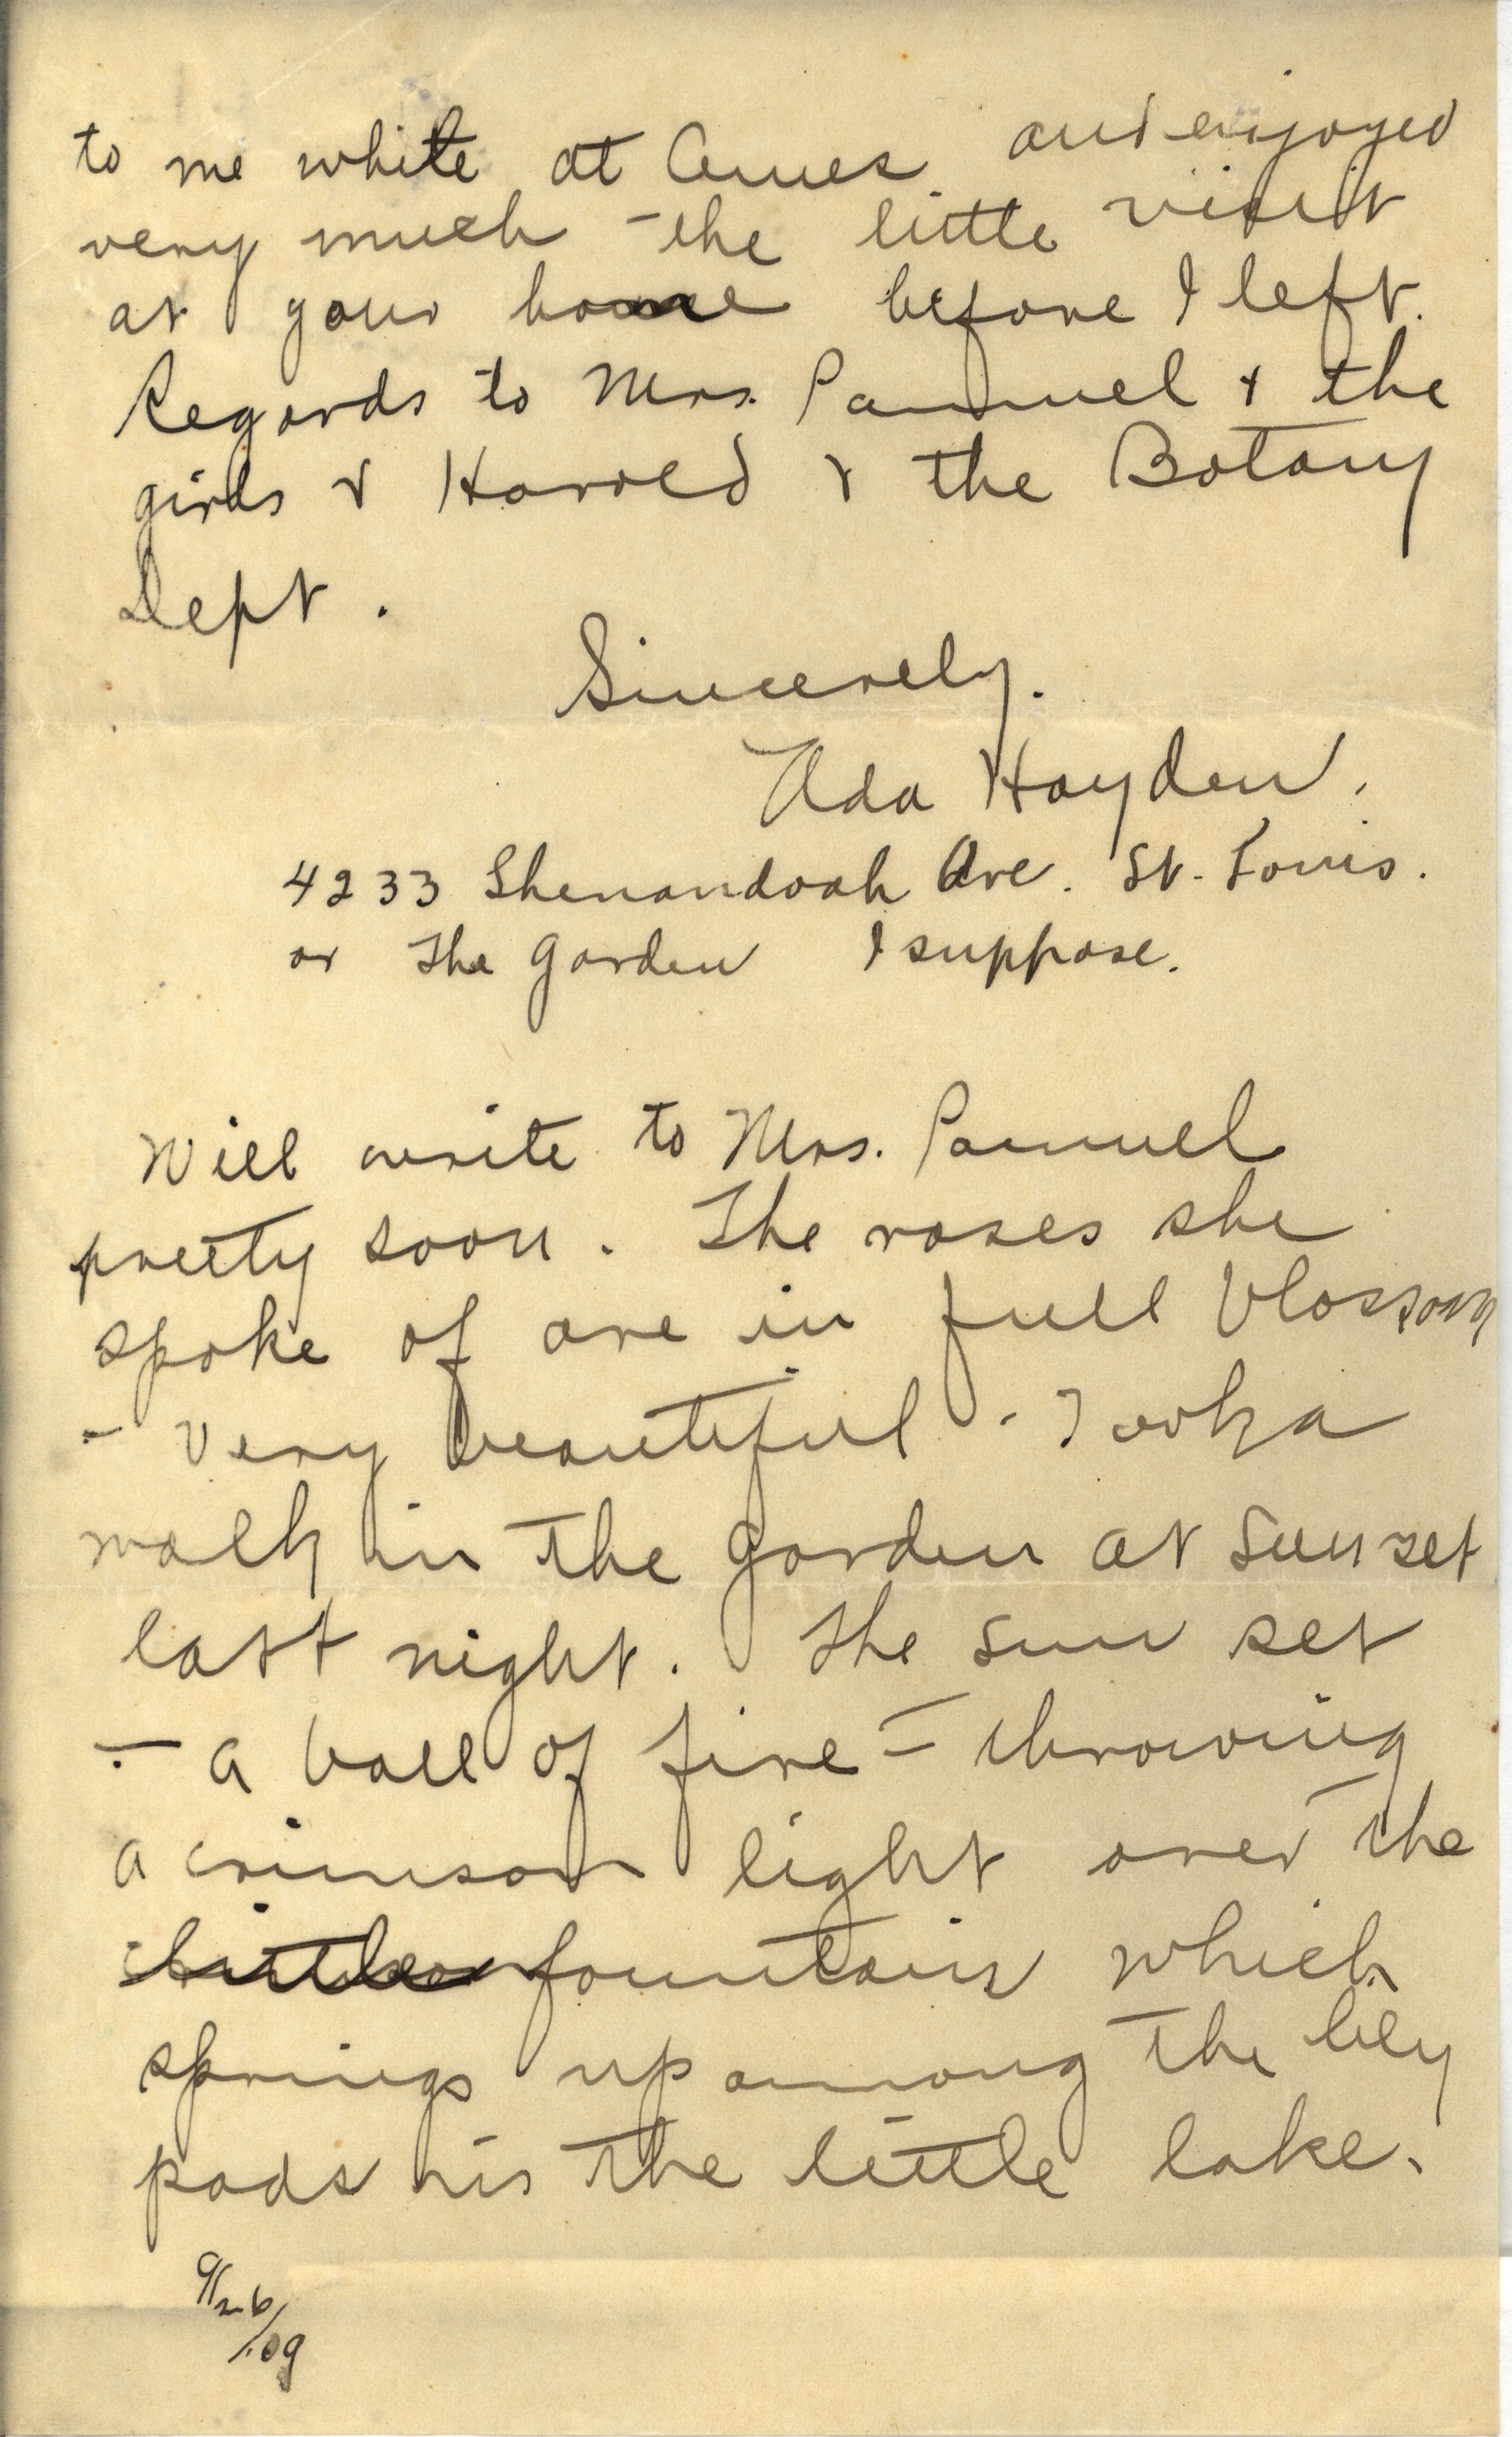 to me while at Ames. and enjoyed
very much the little visit
at your home before I left.
Regards to Mrs. Pammel & the
girls & Harold & the Botany
Dept.
Sincerely.
Ada Hayden.
4233 Shenandoah Ave. St. Louis.
or The Garden I suppose.
Will write to Mrs. Pammel
pretty soon. The roses she
spoke of are in full blossom
- very beautiful - Took a
walk in the garden at sunset
last night. The sun set
- a ball of fire - throwing
a crimson light over the
fountain which
springs up among the lily
pads in the little lake.
9/26/09